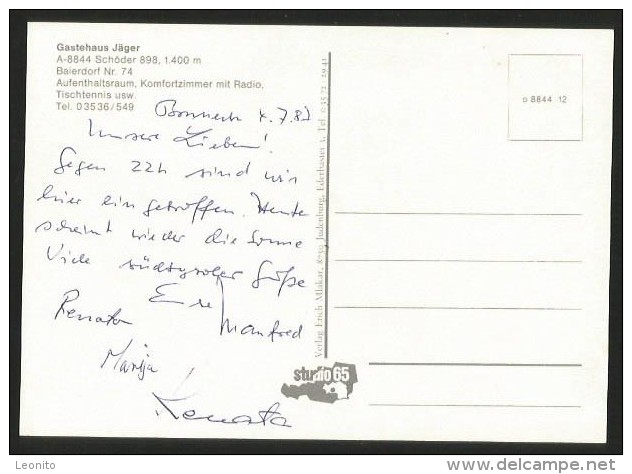 Gästehaus Jäger
A-8844 Schöder 898, 1.400 m
Baierdorf Nr. 74
Aufenthaltsraum, Komfortzimmer mit Radio,
Tischtennis usw.
Tel. 03536/549
4.7.87
Unsere Lieben!
Gegen 22h sind wir
hier eingetroffen. Heute
scheint wieder die Sonne
Viele Grüße
Eure
Manfred
Renata
Marija
Renata
Verlag Erich Mlakar, 8750 Judenburg, Tel. 03572 2941
studio 65
o 8844 12
Leonito
www.delcampe.net